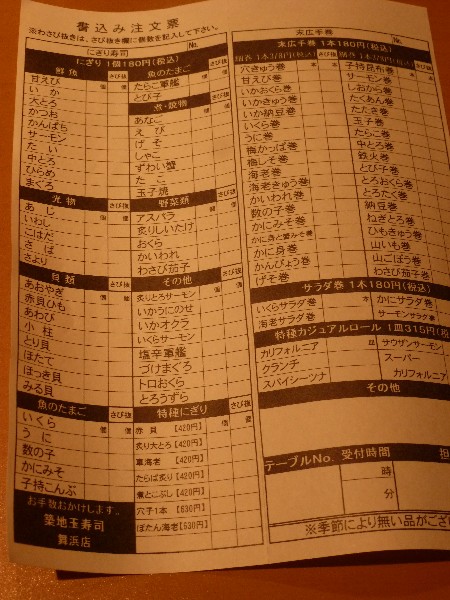 書込み注文票
※わさび抜きは、さび抜き欄に個数を記入して下さい。
にぎり寿司 No.
にぎり 1個180円(税込)
鮮魚 さび抜
甘えび 個 個
いか
大とろ
かつお
かんぱち
サーモン
たい
中とろ
ひらめ
まぐろ
光物 さび抜
あじ 個 個
いわし
こはだ
さば
さより
貝類 さび抜
あおやぎ 個 個
赤貝ひも
あわび
小柱
とり貝
ほたて
ほっき貝
みる貝
魚のたまご さび抜
いくら 個 個
うに
数の子
かにみそ
子持こんぶ
お手数おかけします。
築地玉寿司
舞浜店
魚のたまご さび抜
たらこ軍艦 個 個
とび子
煮・焼物 さび抜
あなご 個 個
えび
げそ
しゃこ
ずわい蟹
たこ
玉子焼
野菜類 さび抜
アスパラ 個 個
炙りしいたけ
おくら
かいわれ
わさび茄子
その他 さび抜
炙りとろサーモン 個 個
いかうにのせ
いかオクラ
いくらサーモン
塩辛軍艦
づけまぐろ
トロおくら
とろうずら
特種にぎり さび抜
赤貝【420円】 個 個
炙り大とろ【420円】
車海老【420円】
たらば炙り【420円】
煮とこぶし【420円】
穴子1本【630円】
ぼたん海老【630円】
末広手巻 No.
末広手巻 1本180円(税込)
穴きゅう巻
甘えび巻
いかおくら巻
いかきゅう巻
いか納豆巻
いくら巻
うに巻
梅かっぱ巻
梅しそ巻
海老巻
海老きゅう巻
かいわれ巻
数の子巻
かにみそ巻
かに身と蟹みそ巻
かに身巻
かんぴょう巻
げそ巻
子持昆布巻
サーモン巻
しおから巻
たくあん巻
たたき巻
玉子巻
たらこ巻
中とろ巻
鉄火巻
とび子巻
とろおくら巻
とろたく巻
納豆巻
ねぎとろ巻
ひもきゅう巻
山いも巻
山ごぼう巻
わさび茄子巻
サラダ巻 1本180円(税込)
いくらサラダ巻 本
海老サラダ巻
かにサラダ巻
サーモンサラダ巻
特種カジュアルロール 1皿315円(税込
カリフォルニア 皿
クランチ
スパイシーツナ
サウザンサーモン
スーパー
カリフォルニア
その他
テーブルNo. 受付時間 担
時
分
※季節により無い品がござい